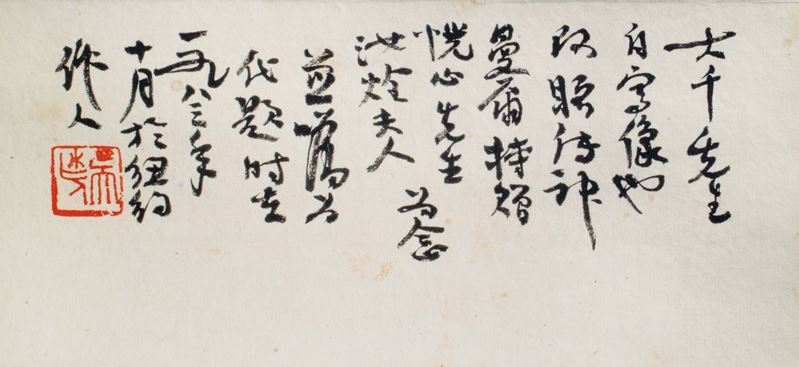 大千先生
自写像也
阿睹传神
曼爾持赠
恍心先生
夫人 为念
并嘱为
代题时在
一九八三年
十月於纽约
作人